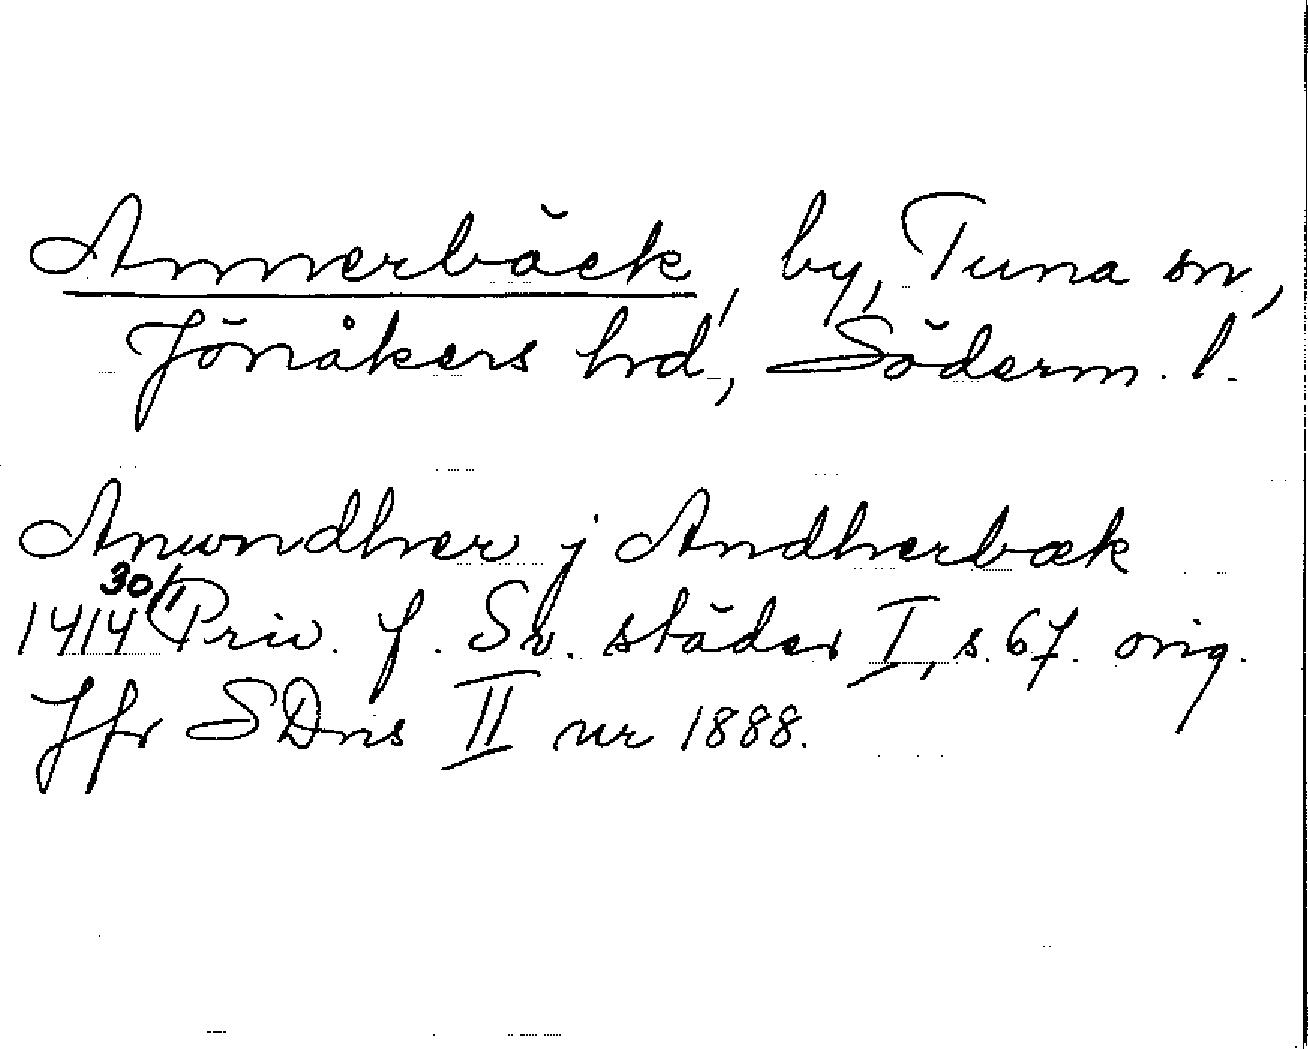 Annerbäck, by, Tuna sn,
Jönåkers hrd, Söderm. l.
Anwndher j Andherbæk
1414 30/1 Priv. f. Sv. städer I, s. 67. orig.
Jfr SDns II nr 1888.